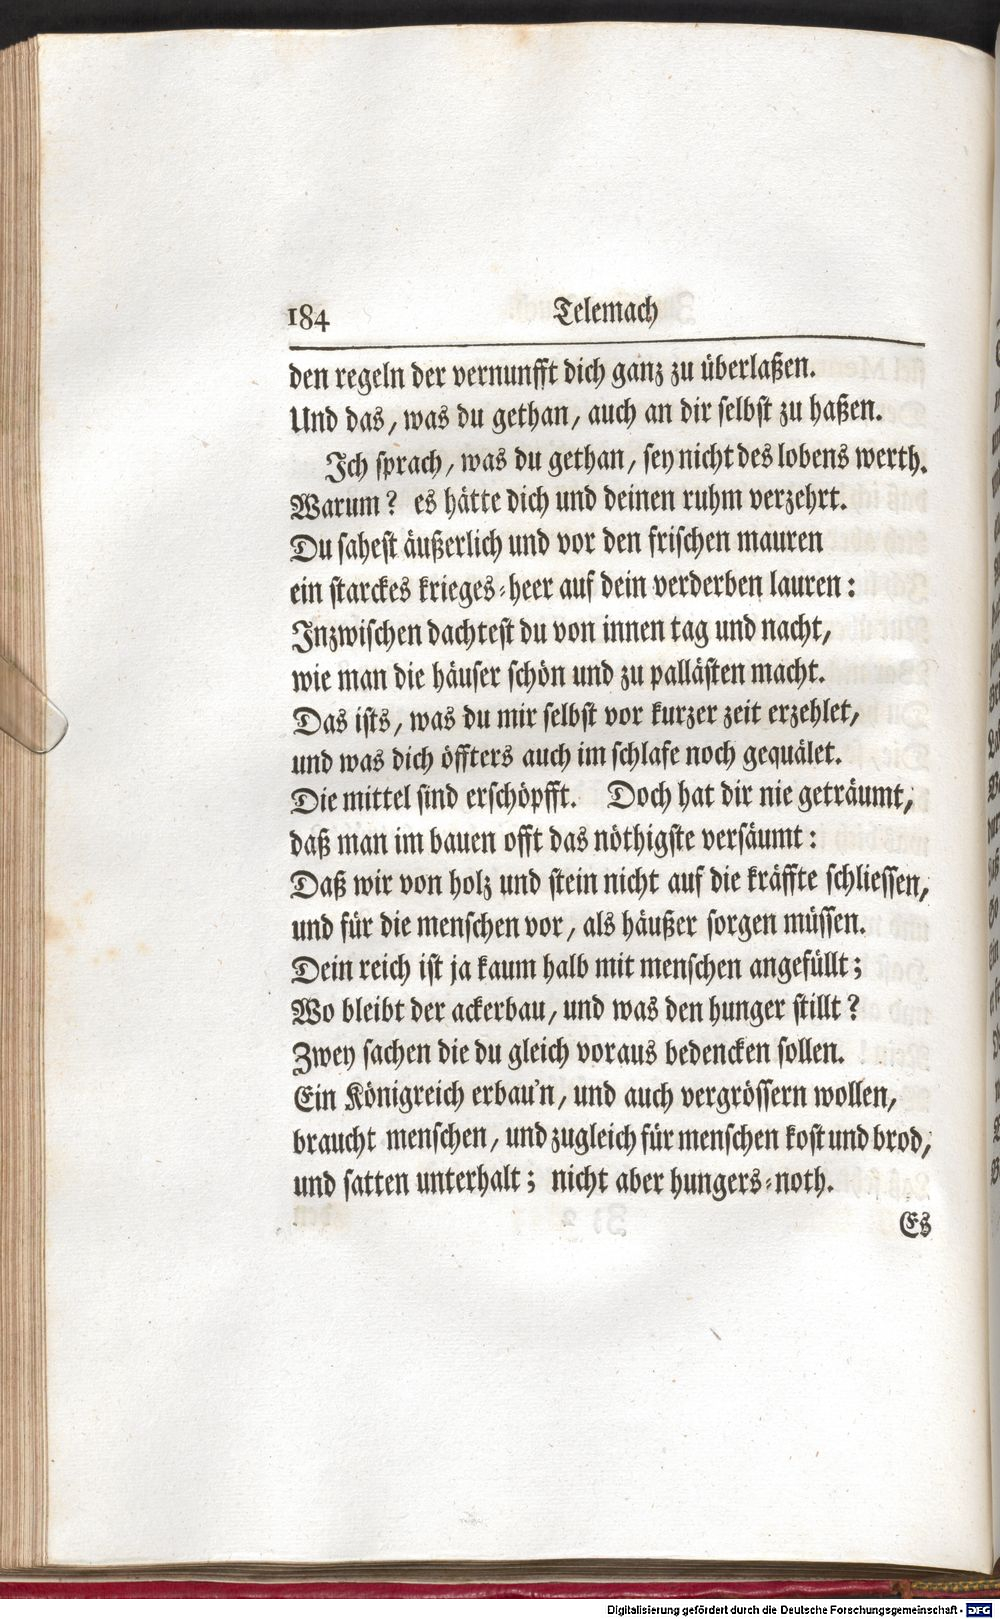 184 Telemach
den regeln der vernunfft dich ganz zu überlaßen.
Und das, was du gethan, auch an dir selbst zu haßen.
Ich sprach, was du gethan, sey nicht des lobens werth.
Warum? es hätte dich und deinen ruhm verzehrt.
Du sahest äußerlich und vor den frischen mauren
ein starckes krieges-heer auf dein verderben lauren:
Inzwischen dachtest du von innen tag und nacht,
wie man die häuser schön und zu pallästen macht.
Das ists, was du mir selbst vor kurzer zeit erzehlet,
und was dich öffters auch im schlafe noch gequälet.
Die mittel sind erschöpfft. Doch hat dir nie geträumt,
daß man im bauen offt das nöthigste versäumt:
Daß wir von holz und stein nicht auf die kräffte schliessen,
und für die menschen vor, als häußer sorgen müssen.
Dein reich ist ja kaum halb mit menschen angefüllt;
Wo bleibt der ackerbau, und was den hunger stillt?
Zwey sachen die du gleich voraus bedencken sollen.
Ein Königreich erbau'n, und auch vergrössern wollen,
braucht menschen, und zugleich für menschen kost und brod,
und satten unterhalt; nicht aber hungers-noth.
Es
Digitalisierung gefördert durch die Deutsche Forschungsgemeinschaft - DFG